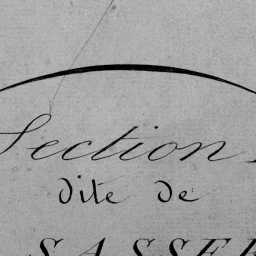 Section
dite de
SASSE